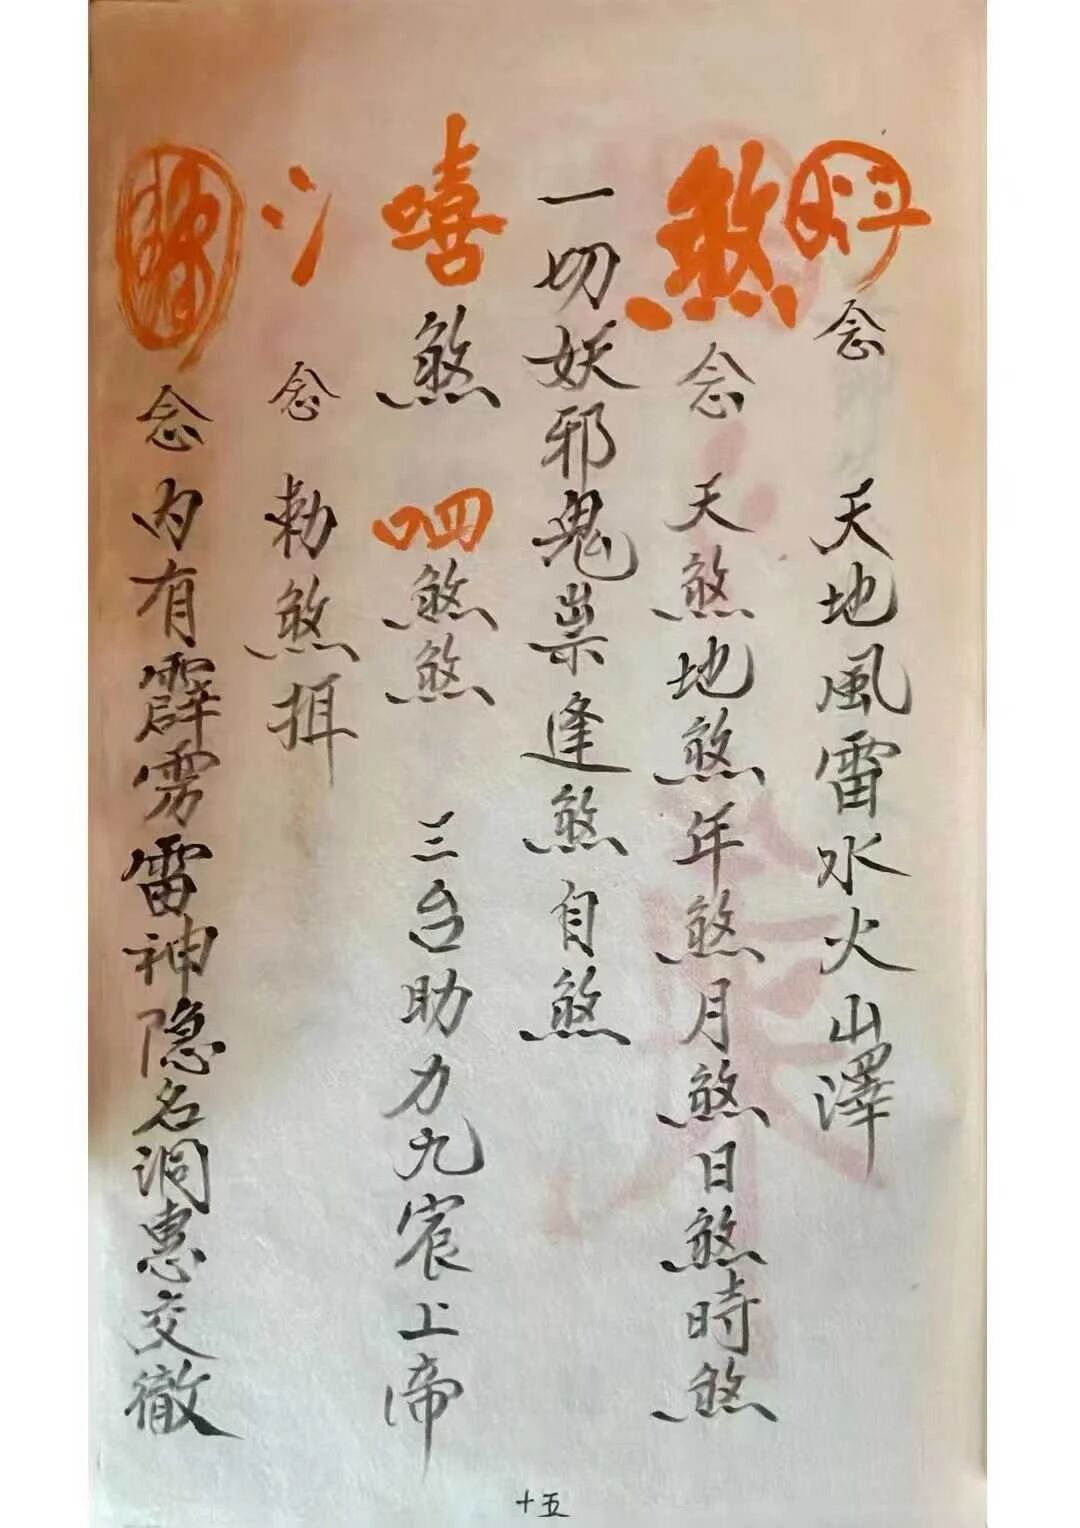 念 天地風雷水火山澤
煞 念 天煞地煞年煞月煞日煞時煞
一切妖邪鬼祟逢煞自煞
嘻煞 呬煞煞 三台助力九宸上帝
氵 念 勑煞挕
念内有霹雳雷神隐名洞惠交徹
十五